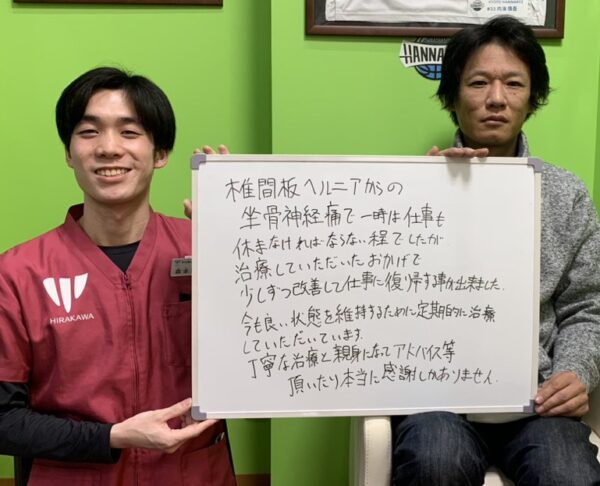 KYOTO HANNARYZ
HANNARYZ
HIRAKAWA
椎間板ヘルニアからの
坐骨神経痛で一時は仕事も
休まなければならない程でしたが
治療していただいたおかげで
少しずつ改善して仕事に復り帰す事が出来ました.
今も良い状態を維持するために定期的に治療
していただいています.
丁寧な治療と親身になってアドバイス等
頂いたり本当に感謝しかありません.